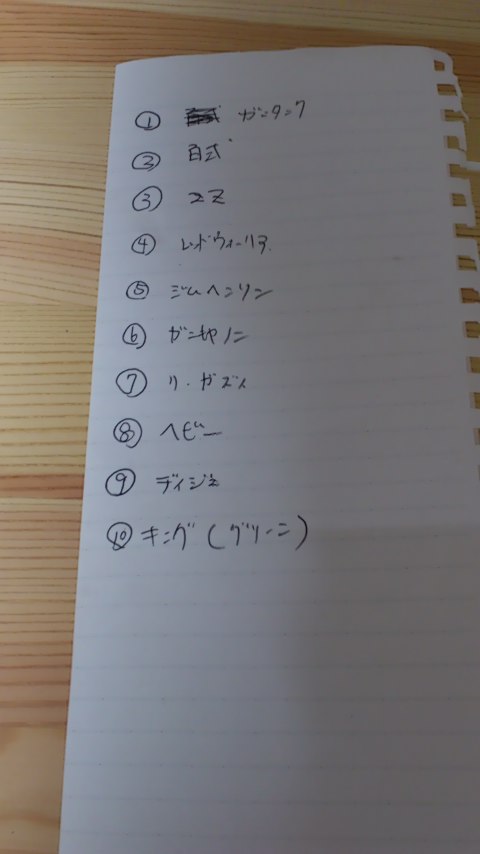 ① ガンタンク
② 百式
③ ZZ
④ レッドウォーリア
⑤ ジムヘンソン
⑥ ガンキャノン
⑦ リ・ガズィ
⑧ ヘビー
⑨ ディジェ
⑩ キング(グリーン)